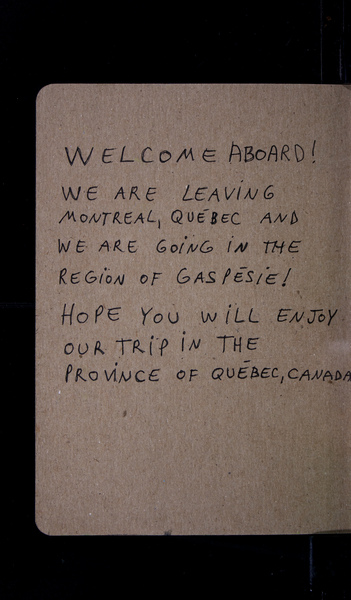 WELCOME ABOARD!
WE ARE LEAVING
MONTREAL, QUÉBEC AND
WE ARE GOING IN THE
REGION OF GASPÉSIE!
HOPE YOU WILL ENJOY
OUR TRIP IN THE
PROVINCE OF QUÉBEC, CANADA